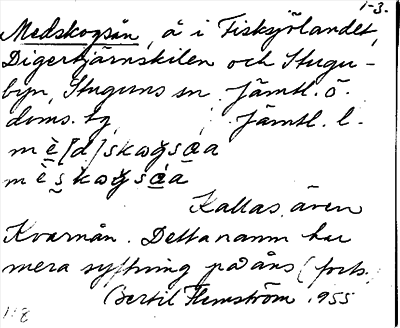 1-3.
Medskogsån, å i Fisksjölandet,
Digertjärnskilen och Stugu-
byn, Stuguns sn Jämtl. ö.
doms. tg, Jämtl. l.
m è [d] skωg̸sa̲a
m è s̲kωg̸sa̲a
Kallas även
Kvarnån. Detta namn har
mera syftning på åns (forts.
Bertil Flemström. 1955
1:8